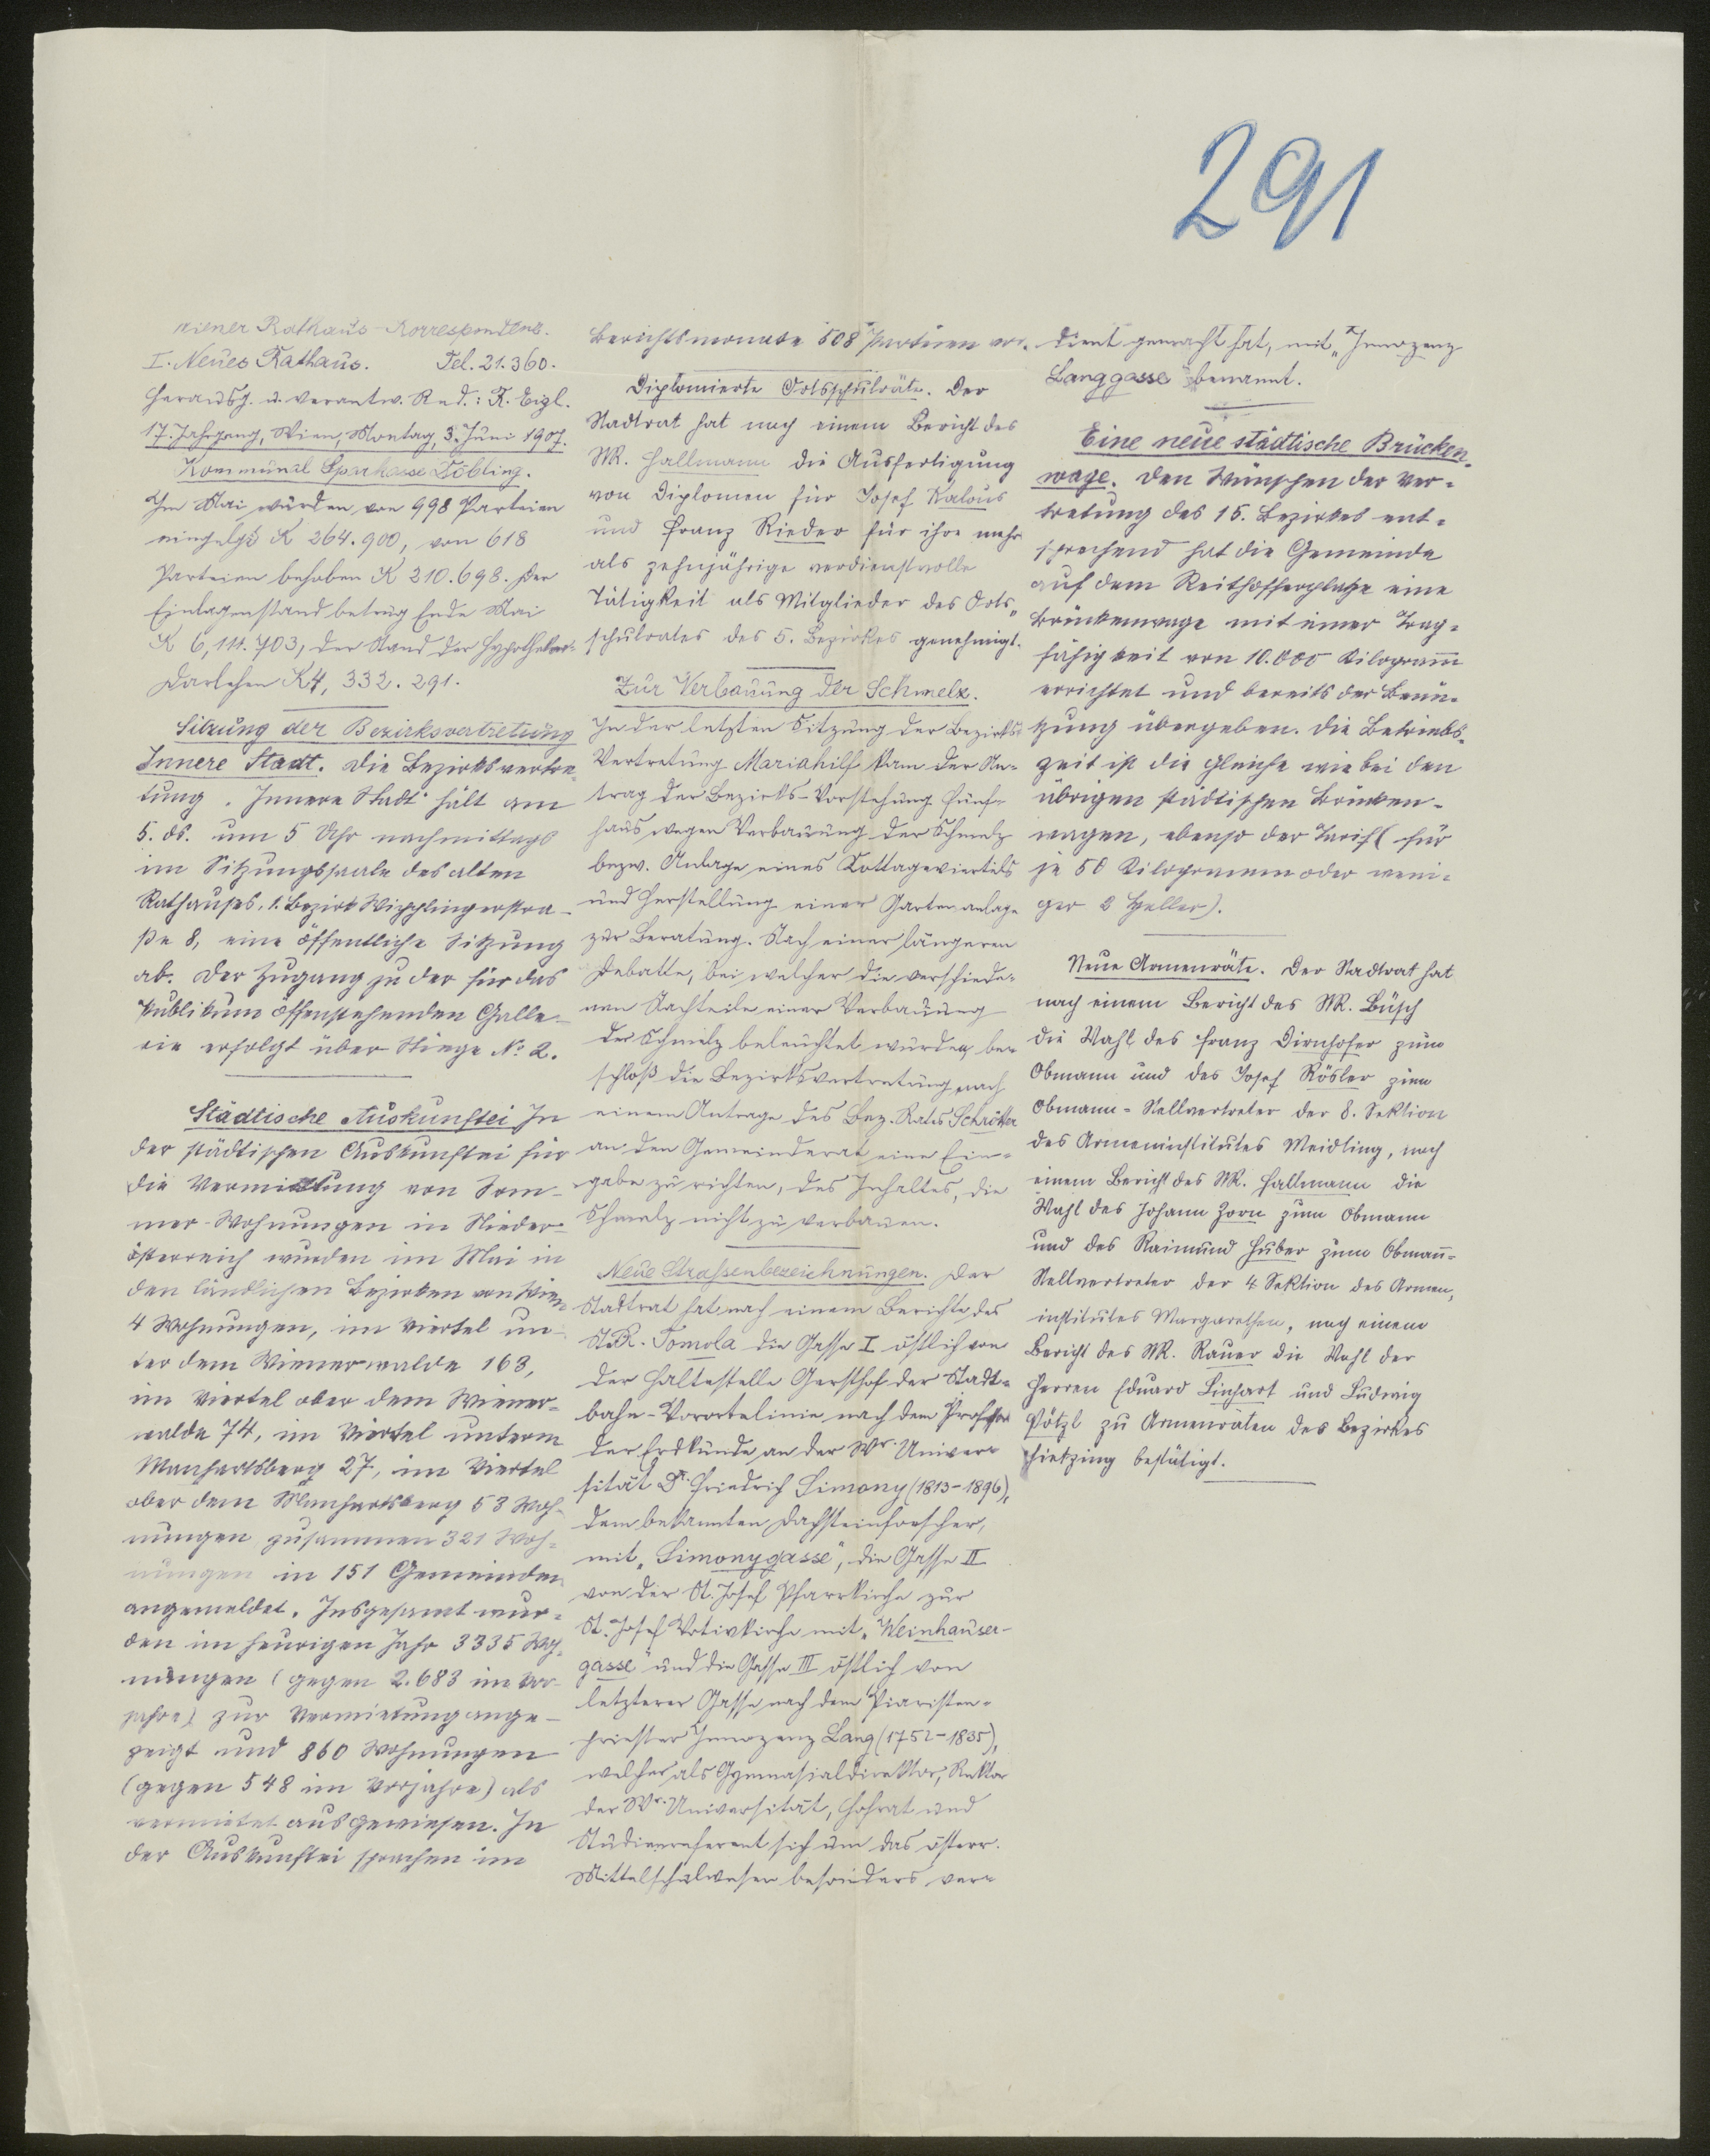 291
Wiener Rathaus-Korrespondenz.
I. Neues Rathaus. Tel. 21.360.
Herausg. u. verantw. Red.: R. Eigl.
17. Jahrgang, Wien, Montag, 3. Juni 1907.
Kommunal Sparkasse Döbling.
Im Mai wurden von 998 Parteien
eingelegt K 264.900, von 618
Parteien behoben K 210.698. Der
Einlagenstand betrug Ende Mai
K 6,111.703, der Stand der Hypothekar-
Darlehen K 4,332.291.
Sitzung der Bezirksvertretung
Innere Stadt. Die Bezirksvertre-
tung Innere Stadt hält am
5. ds. um 5 Uhr nachmittags
im Sitzungssaale des alten
Rathauses, 1. Bezirk Wipplingerstra-
ße 8, eine öffentliche Sitzung
ab. Der Zugang zu der für das
Publikum offenstehenden Galle-
rie erfolgt über Stiege No 2.
Städtische Auskunftei In
der städtischen Auskunftei für
die Vermietung von Som-
mer-Wohnungen in Nieder-
österreich wurden im Mai in
den ländlichen Bezirken von Wien
4 Wohnungen, im Viertel un-
ter dem Wienerwalde 163,
im Viertel ober dem Wiener-
walde 74, im Viertel unterm
Manhartsberg 27, im Viertel
ober dem Manhartsberg 53 Woh-
nungen zusammen 321 Woh-
nungen in 151 Gemeinden
angemeldet. Insgesamt wur-
den im heurigen Jahr 3335 Woh-
nungen (gegen 2.683 im Vor-
jahre) zur Vermietung ange-
zeigt und 860 Wohnungen
(gegen 548 im Vorjahre) als
vermietet ausgewiesen. In
der Auskunftei sprachen im
Berichtsmonate 508 Parteien vor.
Diplomierte Ortsschulräte. Der
Stadtrat hat nach einem Bericht des
StR. Hallmann die Ausfertigung
von Diplomen für Josef Kalous
und Franz Rieder für ihre mehr
als zehnjährige verdienstvolle
Tätigkeit als Mitglieder des Orts-
schulrates des 5. Bezirkes genehmigt.
Zur Verbauung der Schmelz.
In der letzten Sitzung der Bezirks-
Vertretung Mariahilf kam der An-
trag der Bezirks-Vorstehung Fünf-
haus wegen Verbauung der Schmelz
bezw. Anlage eines Kottageviertels
und Herstellung einer Gartenanlage
zur Beratung. Nach einer längeren
Debatte, bei welcher die verschiede-
nen Nachteile einer Verbauung
der Schmelz beleuchtet wurden, be-
schloß die Bezirksvertretung nach
einem Antrage des Bez. Rates Schrötter
an den Gemeinderat eine Ein-
gabe zu richten, des Inhaltes, die
Schmelz nicht zu verbauen.
Neue Strassenbezeichnungen. Der
Stadtrat hat nach einem Berichte des
StR. Tomola die Gasse I östlich von
der Haltestelle Gersthof der Stadt-
bahn-Vorortelinie nach dem Professor
der Erdkunde an der Wr. Univer-
sität Dr. Friedrich Simony (1813-1896),
dem bekannten Dachsteinforscher,
mit „Simonygasse", die Gasse II
von der St. Josef Pfarrkirche zur
St. Josef Votivkirche mit „Weinhauser-
gasse" und die Gasse III östlich von
letzterer Gasse nach dem Piaristen-
priester Innozenz Lang (1752-1835),
welcher als Gymnasialdirektor, Rektor
der Wr. Universität, Hofrat und
Studienreferent sich um das österr.
Mittelschulwesen besonders ver-
dient gemacht hat, mit „Innozenz
Langgasse" benannt.
Eine neue städtische Brücken-
wage. Den Wünschen der Ver-
tretung des 15. Bezirkes ent-
sprechend hat die Gemeinde
auf dem Reithofferplatze eine
Brückenwage mit einer Trag-
fähigkeit von 10.000 Kilogramm
errichtet und bereits der Benü-
tzung übergeben. Die Betriebs-
zeit ist die gleiche wie bei den
übrigen städtischen Brücken-
wagen, ebenso der Tarif (für
je 50 Kilogramm oder weni-
ger 2 Heller).
Neue Armenräte. Der Stadtrat hat
nach einem Bericht des StR. Büsch
die Wahl des Franz Dirnhofer zum
Obmann und des Josef Rösler zum
Obmann-Stellvertreter der 8. Sektion
des Armeninstitutes Meidling, nach
einem Bericht des StR. Hallmann die
Wahl des Johann Zorn zum Obmann
und des Raimund Huber zum Obmann-
Stellvertreter der 4 Sektion des Armen-
institutes Margarethen, nach einem
Bericht des StR. Rauer die Wahl der
Herren Eduard Linhart und Ludwig
Pötzl zu Armenräten des Bezirkes
Hietzing bestätigt.